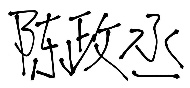 陈政丞